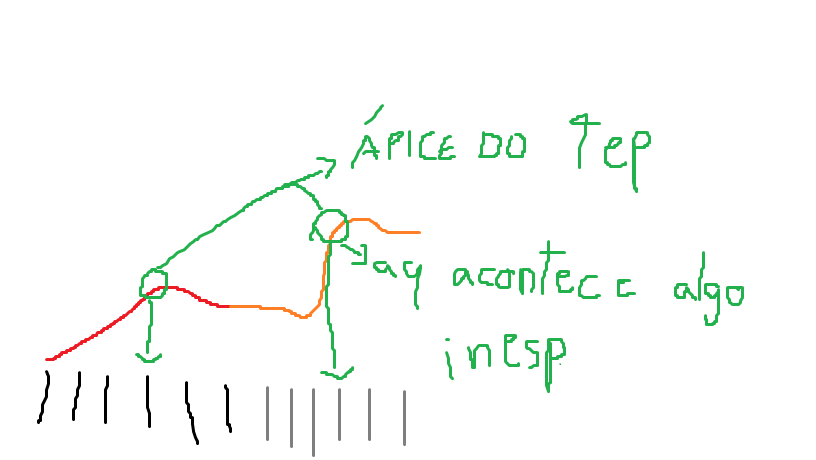 ÁPICE DO TEP
aq acontece algo
inesp